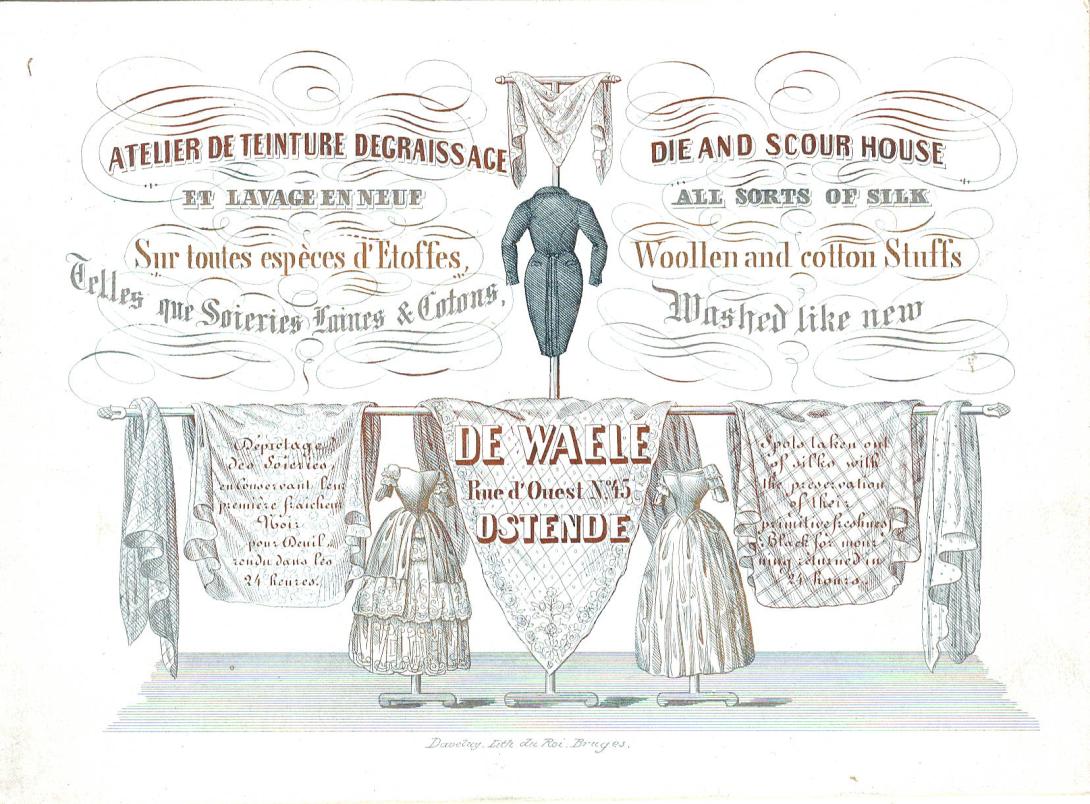 ATELIER DE TEINTURE DEGRAISSAGE
ET LAVAGE EN NEUF
Sur toutes espèces d'Etoffes,
Telles que Soieries Laines & Cotons,
DIE AND SCOUR HOUSE
ALL SORTS OF SILK
Woollen and cotton Stuffs
Washed like new
Déprétage
des Soieries
en Conservant leur
première fraicheur
Noir
pour Deuil
rendu dans les
24 heures.
DE WAELE
Rue d'Ouest N.º 45
OSTENDE
Spots taken out
of silks with
the preservation
of their
primitive freshness
Black for mour
ning returned in
24 hours.
Daveluy. Lith du Roi. Bruges.